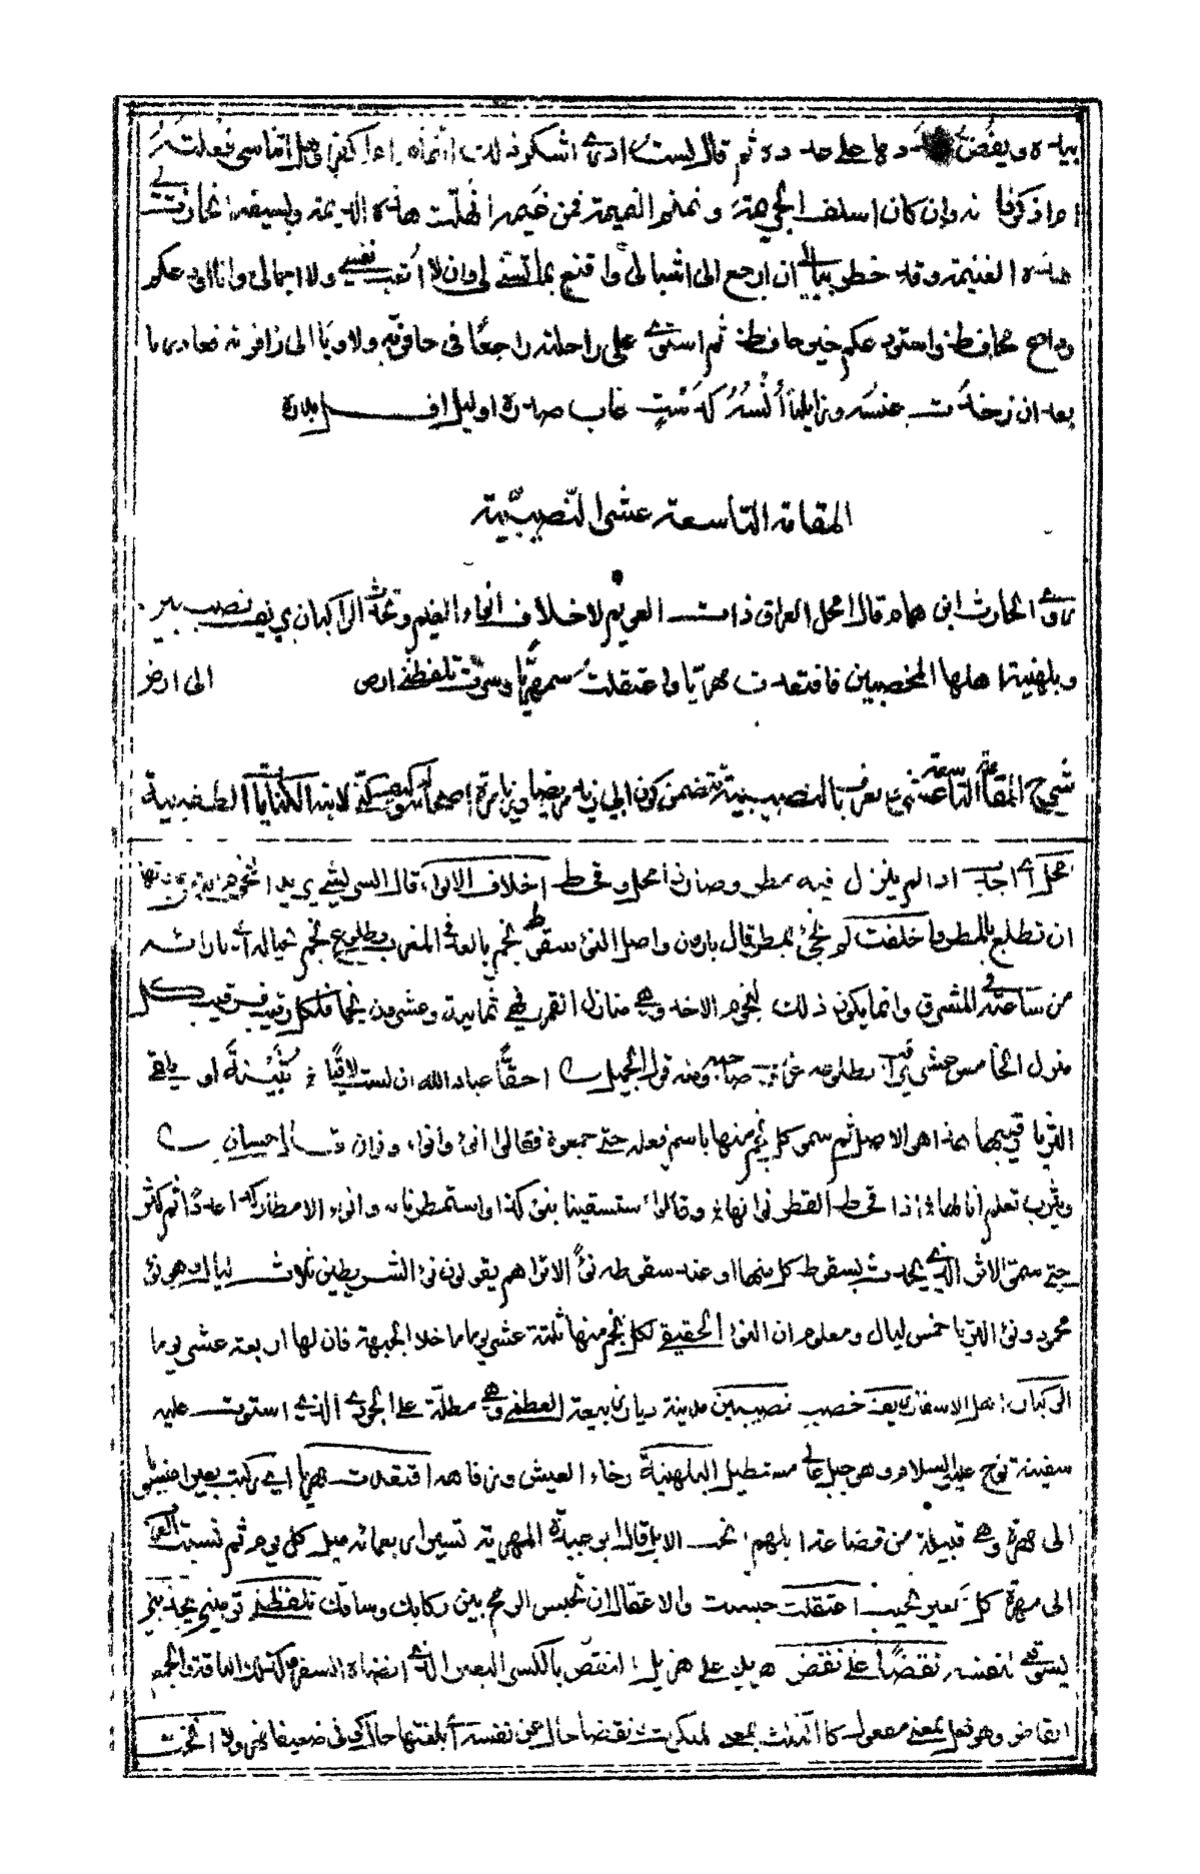 بيده ويفض دمها على حده ثم قال لست ادري ااشكو ذلك النمام ام اشكر ام اتناسى فعلته
ام اذكرها فانه وان كان اسلف الجريمة ونمنم النميمة فمن غيمه انهلت هذه الديمة وبسيفه انحازت لي
هذه الغنيمة وقد خطر ببالي ان ارجع الى اشبالي واقنع بما تسنى لي وان لا اتعب نفسي ولا اجمالي وانا اودعكم
وداع محافظ واستودعكم خير حافظ ثم استوى على راحلته راجعا في حافرته ولاويا الى زافرته فغادرنا
بعد ان زخدت عنسه وزايلنا انسه كدست غاب صدره او ليل افل بدره
المقامة التاسعة عشر النصيبية
روى الحارث ابن همام قال امحل العراق ذات العويم لاخلاف انواء الغيم وتحدث الركبان بريف نصيبين
وبلهنية اهلها المخصبين فاقتعدت مهريا واعتقلت سمهريا وسرت تلفظني ارض الى ارض
شرح المقامة التاسعة عشر تعرف بالنصيبينية تتضمن كون ابي زيد مريضا وزيارة اصحابه الكنايات الطفيلية
امحل اي اجدب اذا لم ينزل فيه مطر وصار ذا محل وقحط اخلاف الانواء قال الشريشي يريد النجوم
ان تطلع بالمطر وما خلفت لم تجئ بمطر قال واصل النوء سقوط نجم بالغداة في المغرب وطلوع نجم حياله
من ساعته في المشرق وانما يكون ذلك لنجوم الاخذ وهي منازل القمر فهي ثمانية وعشرون نجما فلكل رقيب فرقيب كل
منزل الخامس عشر بطلوعه غارب صاحبه ومنه قول الجميل احقا عباد الله ان لست لاقيا بثينة او يلقى
الثريا رقيبها هذا هو الاصل ثم سمو كل نجم منها باسم فعله حتى جمعوه فقالوا انوء وانواء
ويثرب تعلم انا لها اذا قحط القطر نوانها وقالوا استسقينا بنوء كذا واستمطرنا به وانواء الامطار
حتى سمي الاثر الذي يحدث بسقوط كل منها او عند سقوطه نوء الا تراهم يقولون نوء الشرطين ثلاث ليال وهو نوء
محمود ونوء الثريا خمس ليال ومعلوم ان النوء الحقيقي لكل نجم منها ثلثة عشر يوما ما خلا الجبهة فان لها اربعة عشر يوما
الركبان اهل الاسفار ريف خصب نصيبين مدينة ديار ربيعة العظمى وهي مطلة على الجودي الذي استوت عليه
سفينة نوح عليه السلام وهو جبل عال مستطيل البلهنية رخاء العيش ورفاهه اقتعدت مهريا اي ركبت بعيرا منسوبا
الى مهرة وهي قبيلة من قضاعة ابلهم انجب الابل قال ابو عبيدة المهرية تسير اربعمائة ميل كل يوم ثم نسبت العرب
الى مهرة كل بعير نجيب اعتقلت حبست والاعتقال ان تحبس الرمح بين ركابك وساقك تلفظني ترميني يجذبني
نفسه نقضا على نقض هزيلا على هزيل النقض بالكسر البعير الذي انضاه السفر وكذلك الناقة والجمع
انقاض وهو فعل بمعنى مفعول